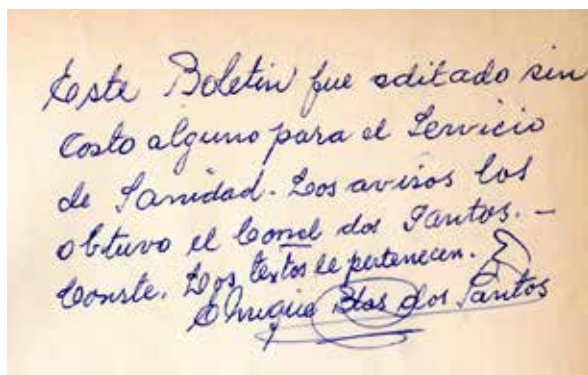 Este Boletin fue editado sin
Costo alguno para el Servicio
de Sanidad. Los avisos los
obtuvo el Coronel dos Santos. -
Conste. Los textos le pertenecen.
Enrique Blas dos Santos